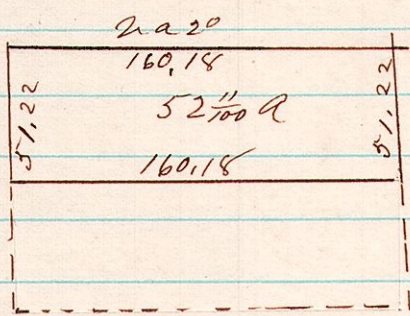 160.18
51.22
52 11/100 A
51.22
160.18